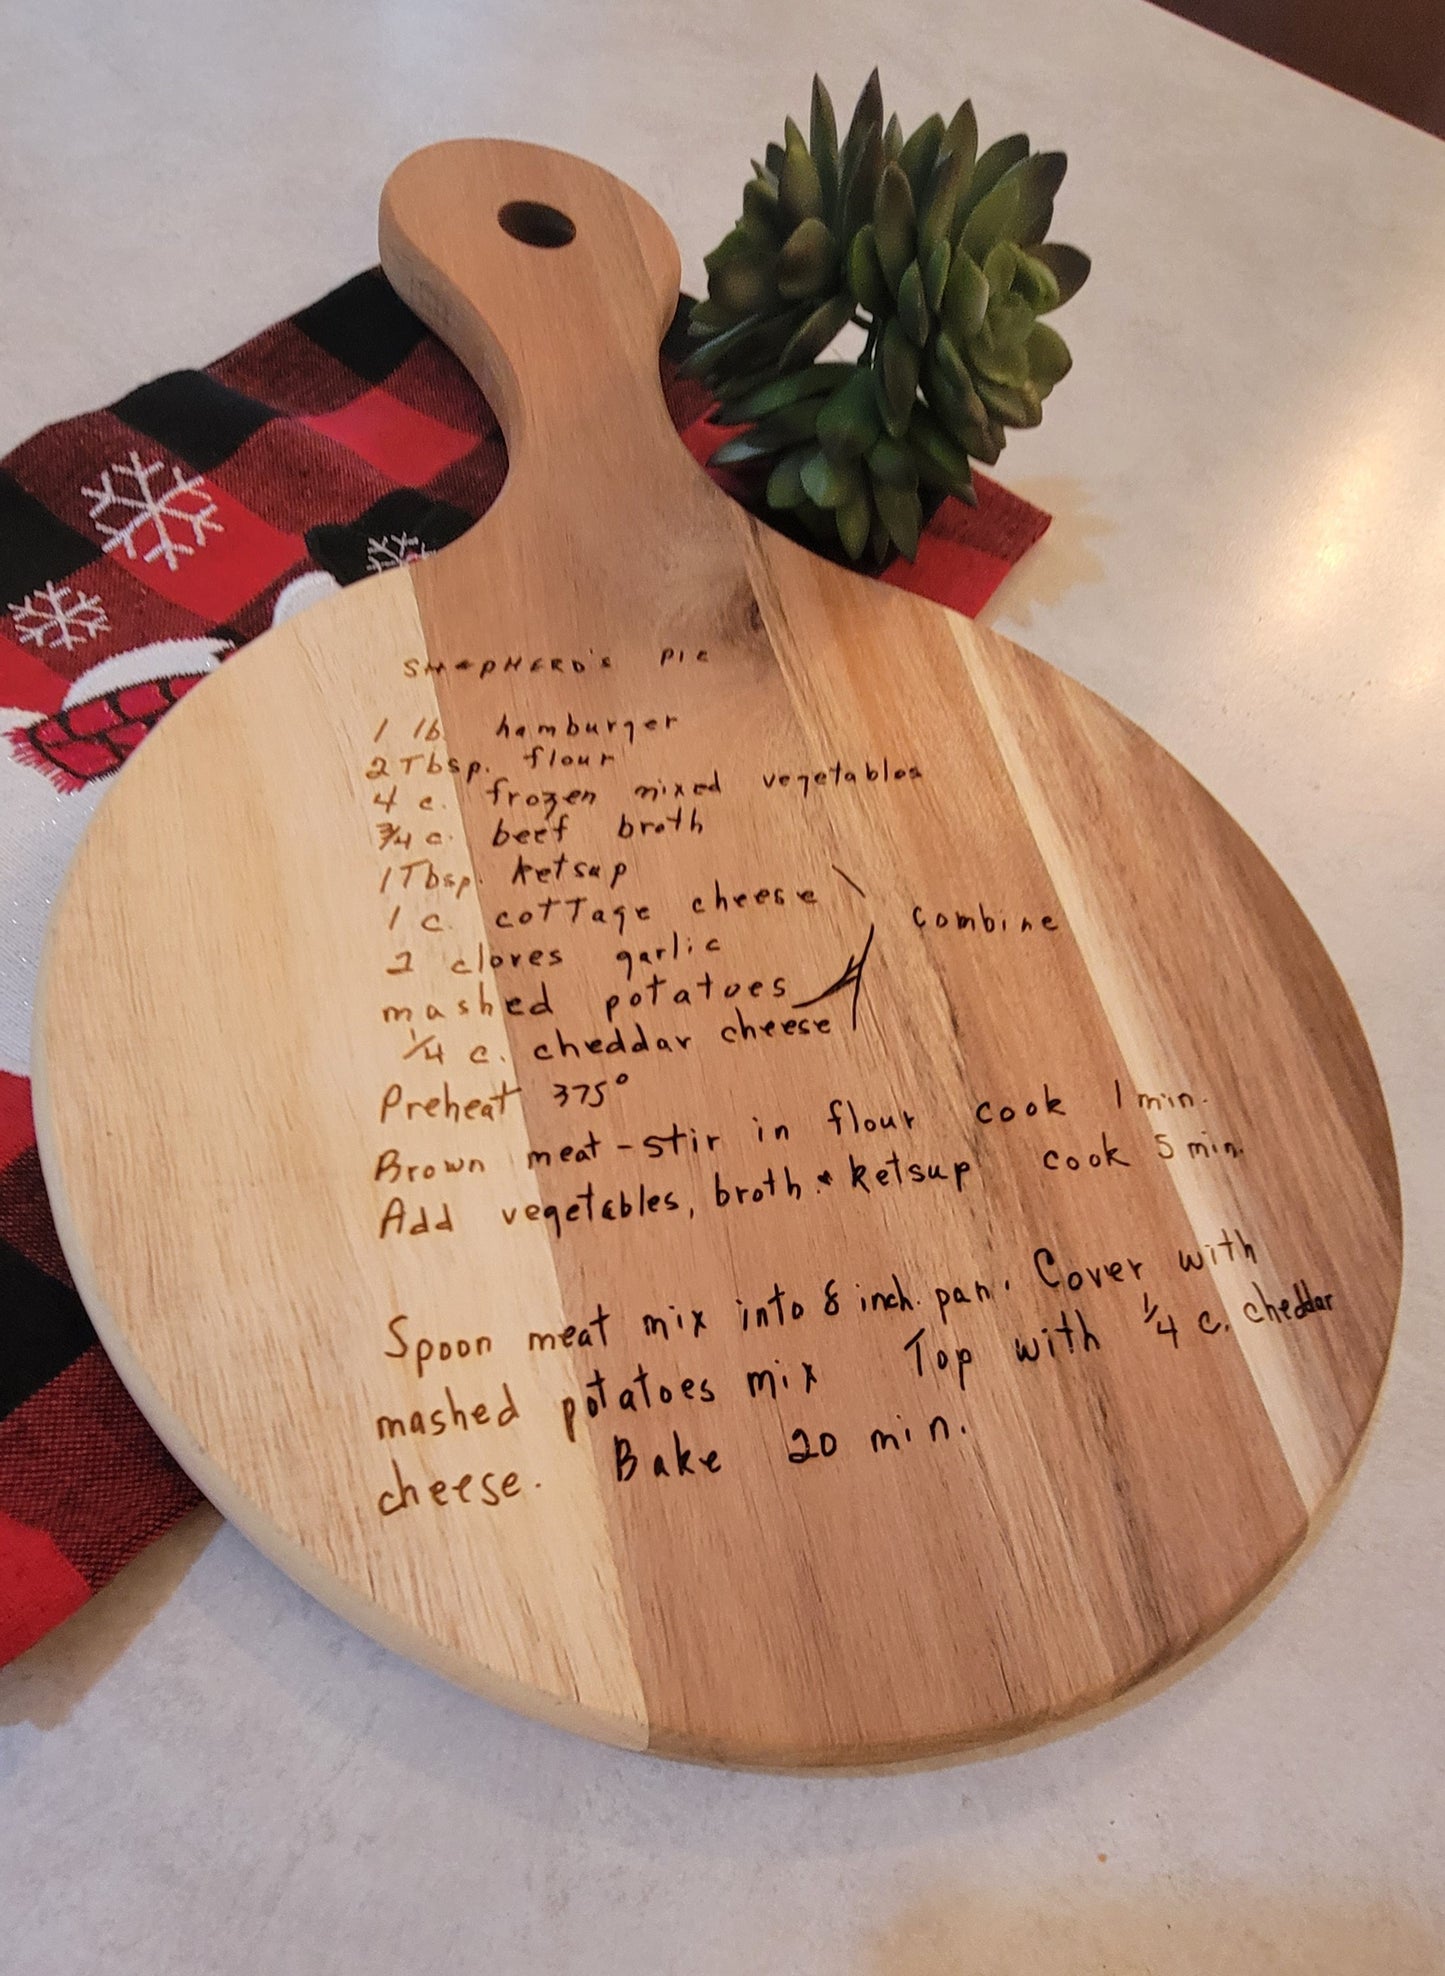 SHEPHERD'S PIE
1 lb. hamburger
2 Tbsp. flour
4 c. frozen mixed vegetables
3/4 c. beef broth
1 Tbsp. ketsup
1 c. cottage cheese
combine
2 cloves garlic
mashed potatoes
1/4 c. cheddar cheese
Preheat 375°
Brown meat - stir in flour cook 1 min.
Add vegetables, broth + ketsup cook 5 min.
Spoon meat mix into 8 inch. pan. Cover with
mashed potatoes mix Top with 1/4 c. cheddar
cheese. Bake 20 min.